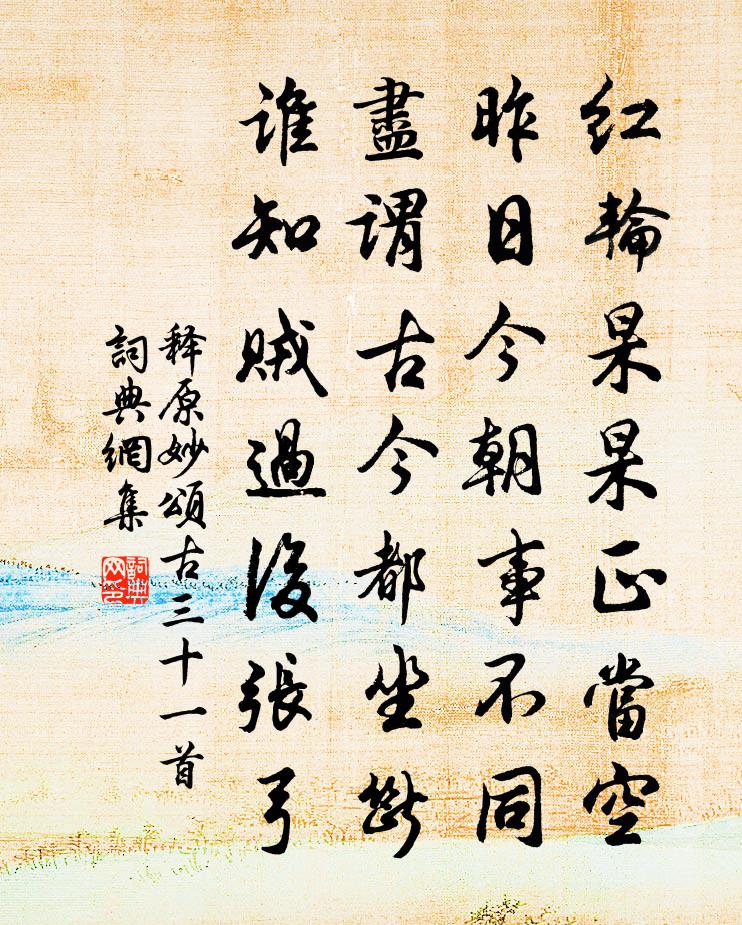 红輪杲杲正當空
昨日今朝事不同
盡謂古今都坐斷
谁知贼過後張弓
释原妙頌古三十一首
詞典網集